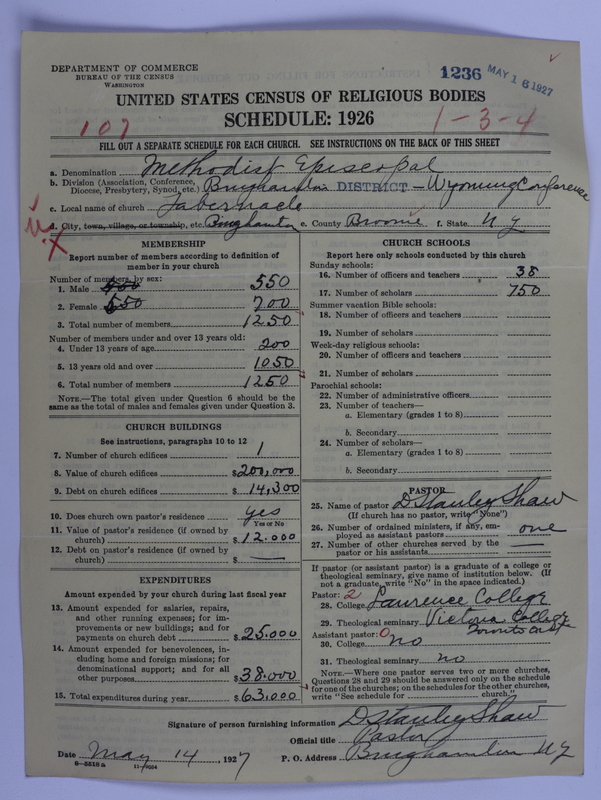 DEPARTMENT OF COMMERCE
BUREAU OF THE CENSUS
WASHINGTON
1236 MAY 16 1927
UNITED STATES CENSUS OF RELIGIOUS BODIES
SCHEDULE: 1926
107
1-3-4
FILL OUT A SEPARATE SCHEDULE FOR EACH CHURCH. SEE INSTRUCTIONS ON THE BACK OF THIS SHEET
a. Denomination Methodist Episcopal
b. Division (Association, Conference, Diocese, Presbytery, Synod, etc.) Binghamton DISTRICT - Wyoming Conference
c. Local name of church Tabernacle
d. City, town, village, or township, etc. Binghamton e. County Broome f. State N Y
MEMBERSHIP
Report number of members according to definition of
member in your church
Number of members, by sex:
1. Male 550
2. Female 650 700
3. Total number of members 1250
Number of members under and over 13 years old:
4. Under 13 years of age 200
5. 13 years old and over 1050
6. Total number of members 1250
NOTE.—The total given under Question 6 should be the
same as the total of males and females given under Question 3.
CHURCH BUILDINGS
See instructions, paragraphs 10 to 12
7. Number of church edifices 1
8. Value of church edifices $200,000
9. Debt on church edifices $14,300
10. Does church own pastor's residence? yes
Yes or No
11. Value of pastor's residence (if owned by
church) $12.000
12. Debt on pastor's residence (if owned by
church) $ —
EXPENDITURES
Amount expended by your church during last fiscal year
13. Amount expended for salaries, repairs,
and other running expenses; for im-
provements or new buildings; and for
payments on church debt $25.000
14. Amount expended for benevolences, in-
cluding home and foreign missions; for
denominational support; and for all
other purposes $38.000
15. Total expenditures during year $63.000
CHURCH SCHOOLS
Report here only schools conducted by this church
Sunday schools:
16. Number of officers and teachers 38
17. Number of scholars 750
Summer vacation Bible schools:
18. Number of officers and teachers
19. Number of scholars
Week-day religious schools:
20. Number of officers and teachers
21. Number of scholars
Parochial schools:
22. Number of administrative officers
23. Number of teachers—
a. Elementary (grades 1 to 8)
b. Secondary
24. Number of scholars—
a. Elementary (grades 1 to 8)
b. Secondary
PASTOR
25. Name of pastor D Stanley Shaw
(If church has no pastor, write "None")
26. Number of ordained ministers, if any, em-
ployed as assistant pastors one
27. Number of other churches served by the
pastor or his assistants —
If pastor (or assistant pastor) is a graduate of a college or
theological seminary, give name of institution below. (If
not a graduate, write "No" in the space indicated.)
Pastor: 2
28. College Lawrence College
29. Theological seminary Victoria College
Assistant pastor: 0 Toronto
30. College no
31. Theological seminary no
NOTE.—Where one pastor serves two or more churches,
Questions 28 and 29 should be answered only on the schedule
for one of the churches; on the schedules for the other churches,
write "See schedule for church."
Signature of person furnishing information D Stanley Shaw
Official title Pastor
Date May 14, 1927 P. O. Address Binghamton NY
8-5518 a